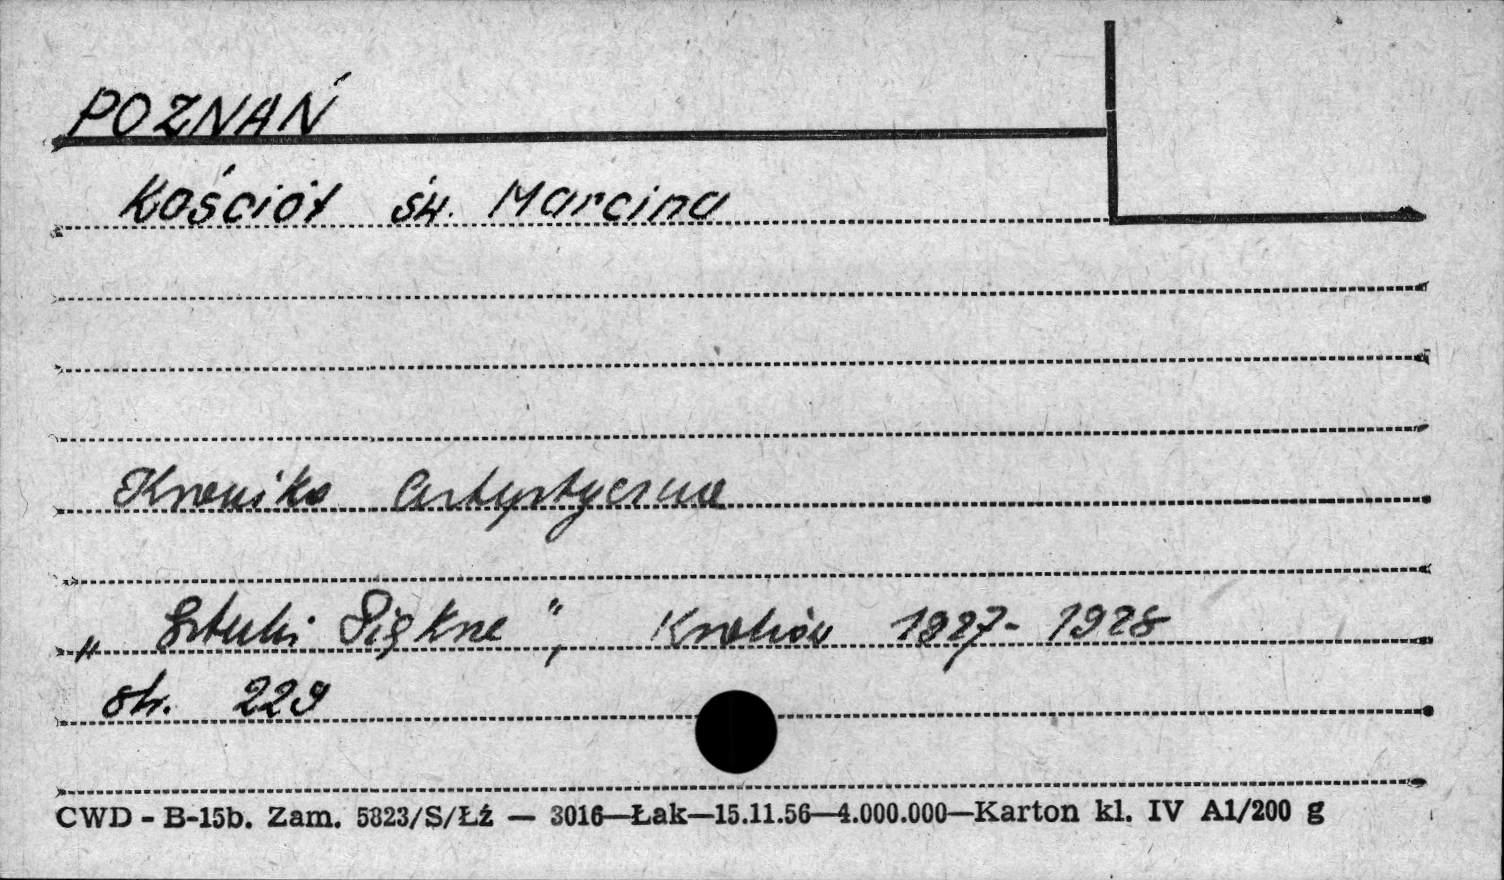 POZNAŃ
Kościół św. Marcina
Kronika Artystyczna
„Sztuki Piękne”, Kraków 1927-1928
str. 229
CWD - B-15b. Zam. 5823/S/Łź — 3016—Łak—15.11.56—4.000.000—Karton kl. IV A1/200 g